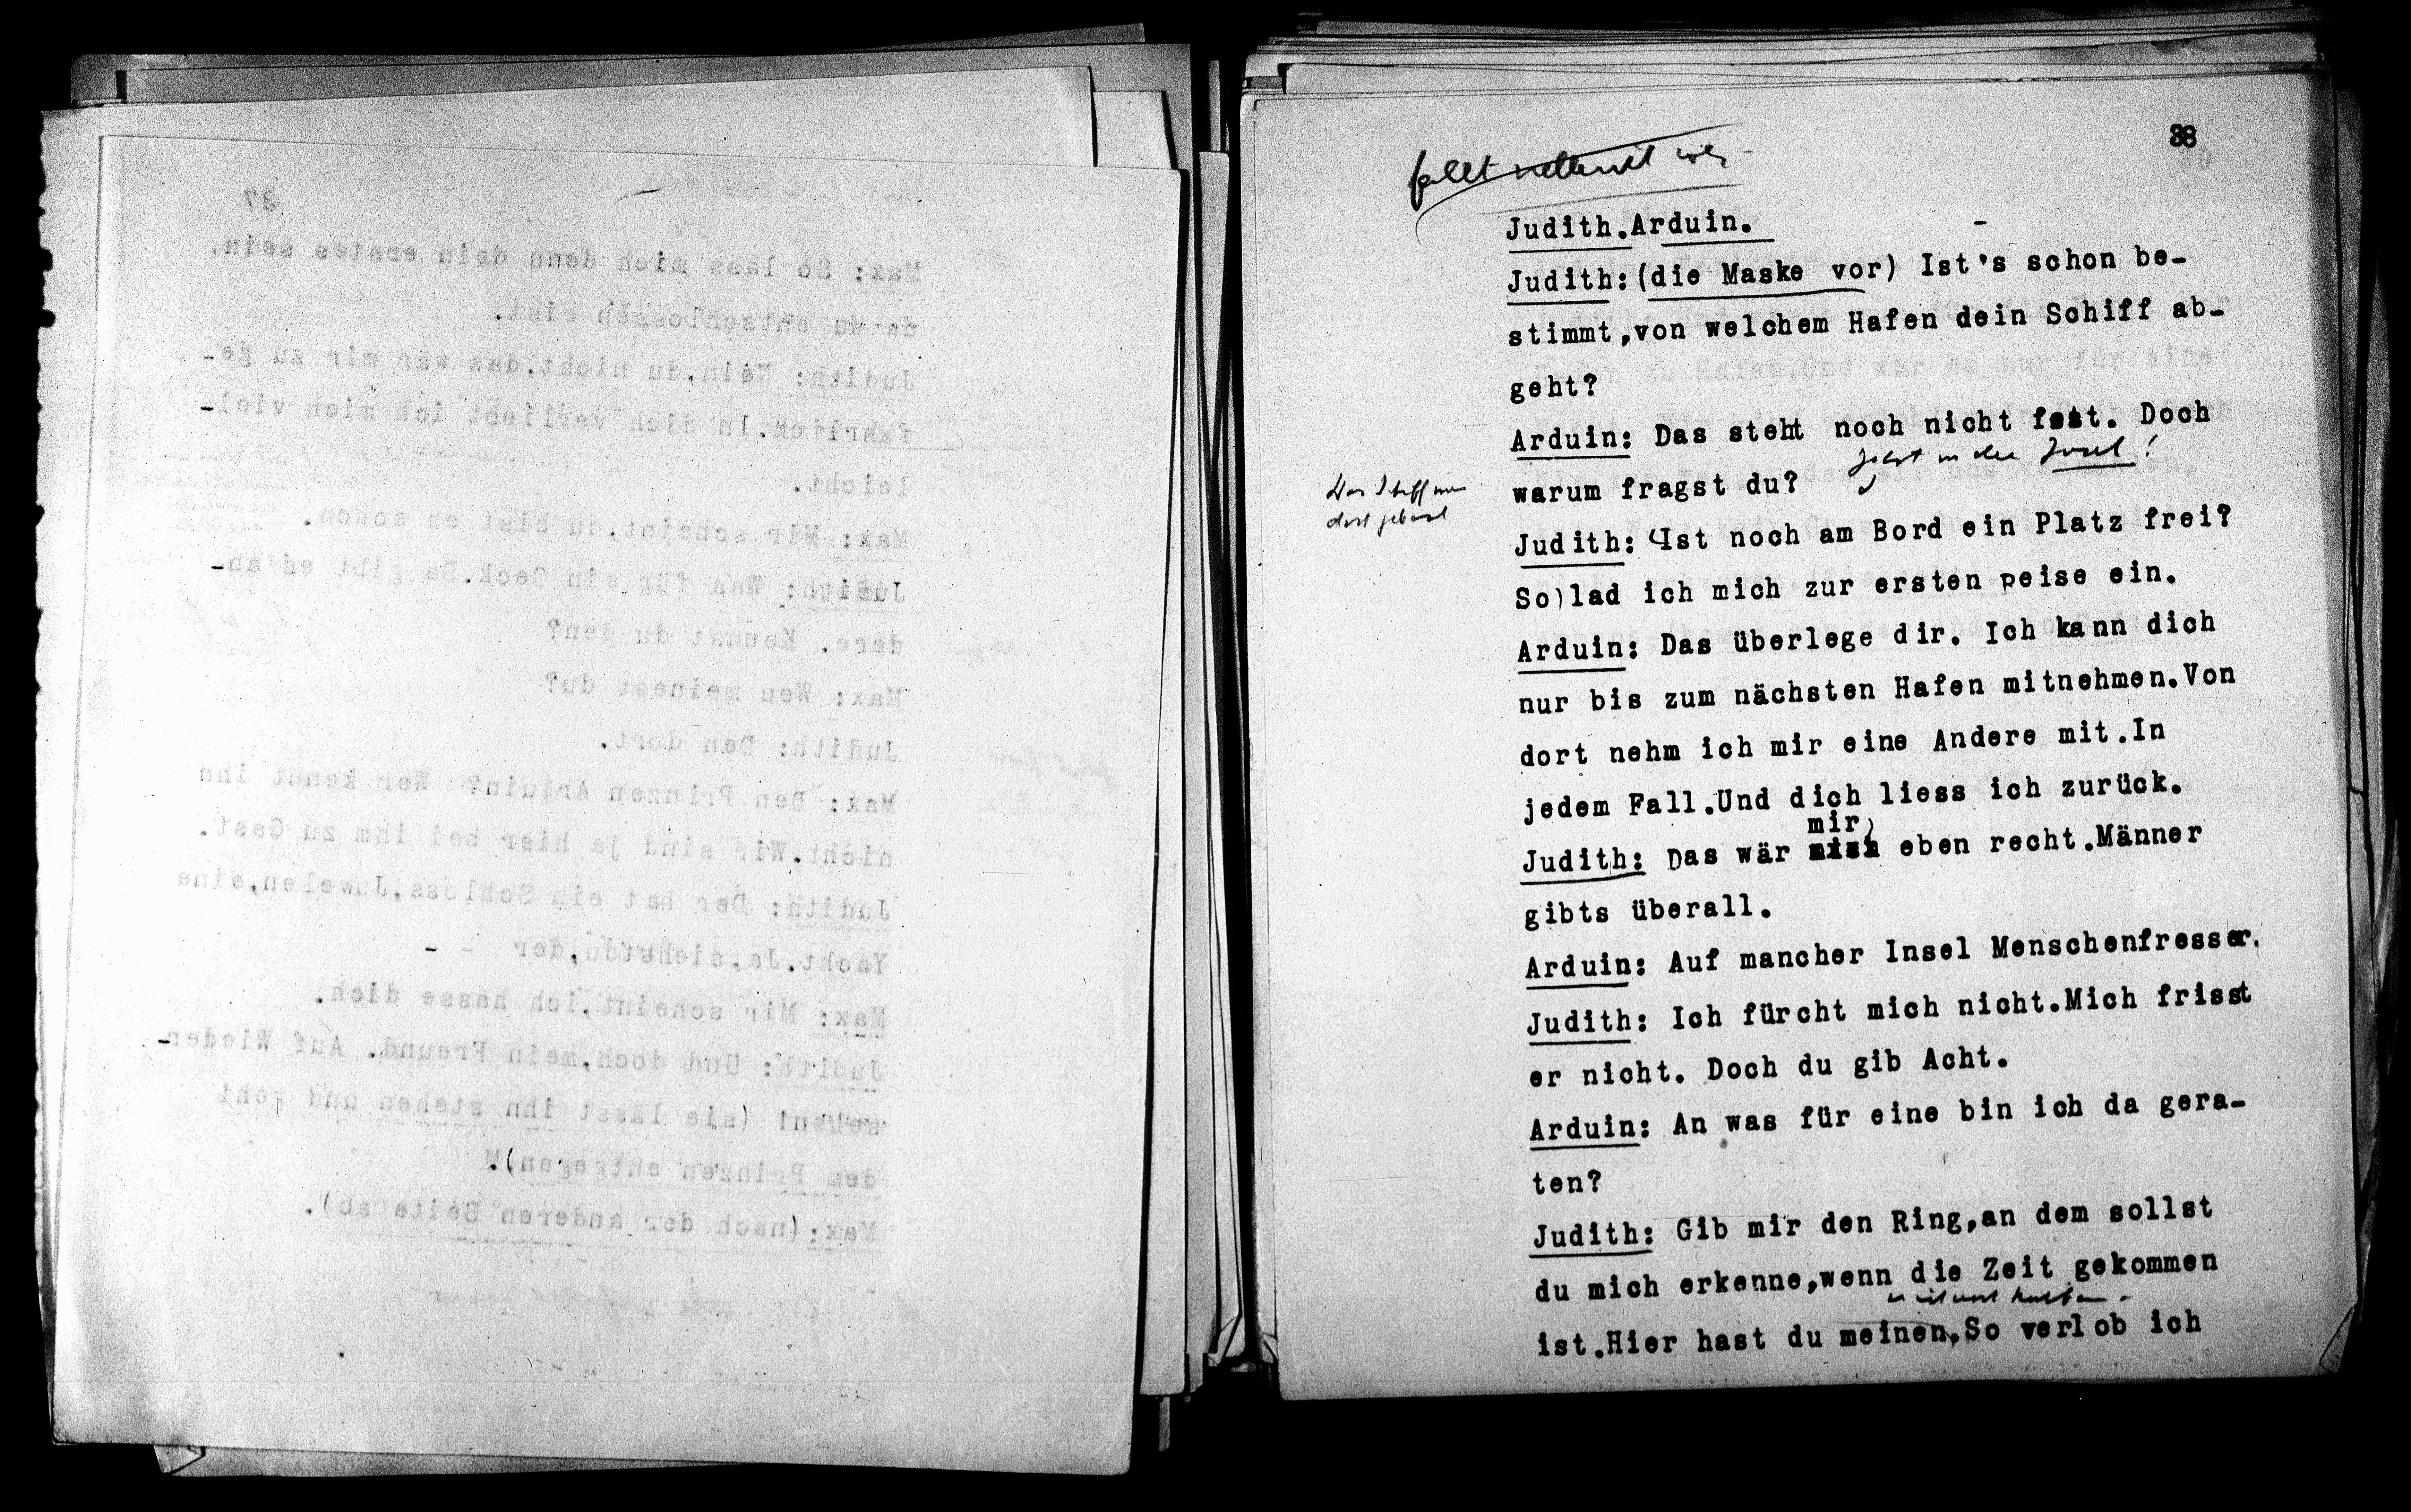 38
fällt weg
Judith.Arduin.
Judith:(die Maske vor) Ist's schon be-
stimmt,von welchem Hafen dein Schiff ab-
geht?
Arduin: Das steht noch nicht fest. Doch
warum fragst du?
Judith: Ist noch am Bord ein Platz frei?
So lad ich mich zur ersten Reise ein.
Arduin: Das überlege dir. Ich kann dich
nur bis zum nächsten Hafen mitnehmen.Von
dort nehm ich mir eine Andere mit.In
jedem Fall.Und dich liess ich zurück.
mir
Judith: Das wär eben recht.Männer
gibts überall.
Arduin: Auf mancher Insel Menschenfresser.
Judith: Ich fürcht mich nicht.Mich frisst
er nicht. Doch du gib Acht.
Arduin: An was für eine bin ich da gera-
ten?
Judith: Gib mir den Ring,an dem sollst
du mich erkenne,wenn die Zeit gekommen
ist.Hier hast du meinen,So verlob ich
37
Max: So lass mich denn dein erstes sein,
da du entschlossen bist.
Judith: Nein,du nicht,das wär mir zu ge-
fährlich.In dich verliebt ich mich viel-
leicht.
Max: Mir scheint,du bist er schon.
Judith: Was für ein Geck.Da gibt es an-
dere. Kennst du den?
Max: Wen meinest du?
Judith: Den dort.
Max: Den Prinzen Arduin? Wer kennt ihn
nicht.Wir sind ja hier bei ihm zu Gast.
Judith: Der hat ein Schloss,Juwelen,eine
Yacht.Ja,siehst du,der - -
Max: Mir scheint,ich hasse dich.
Judith: Und doch,mein Freund. Auf Wieder-
sehen! (sie lässt ihn stehen und geht
dem Prinzen entgegen).
Max:(nach der anderen Seite ab).